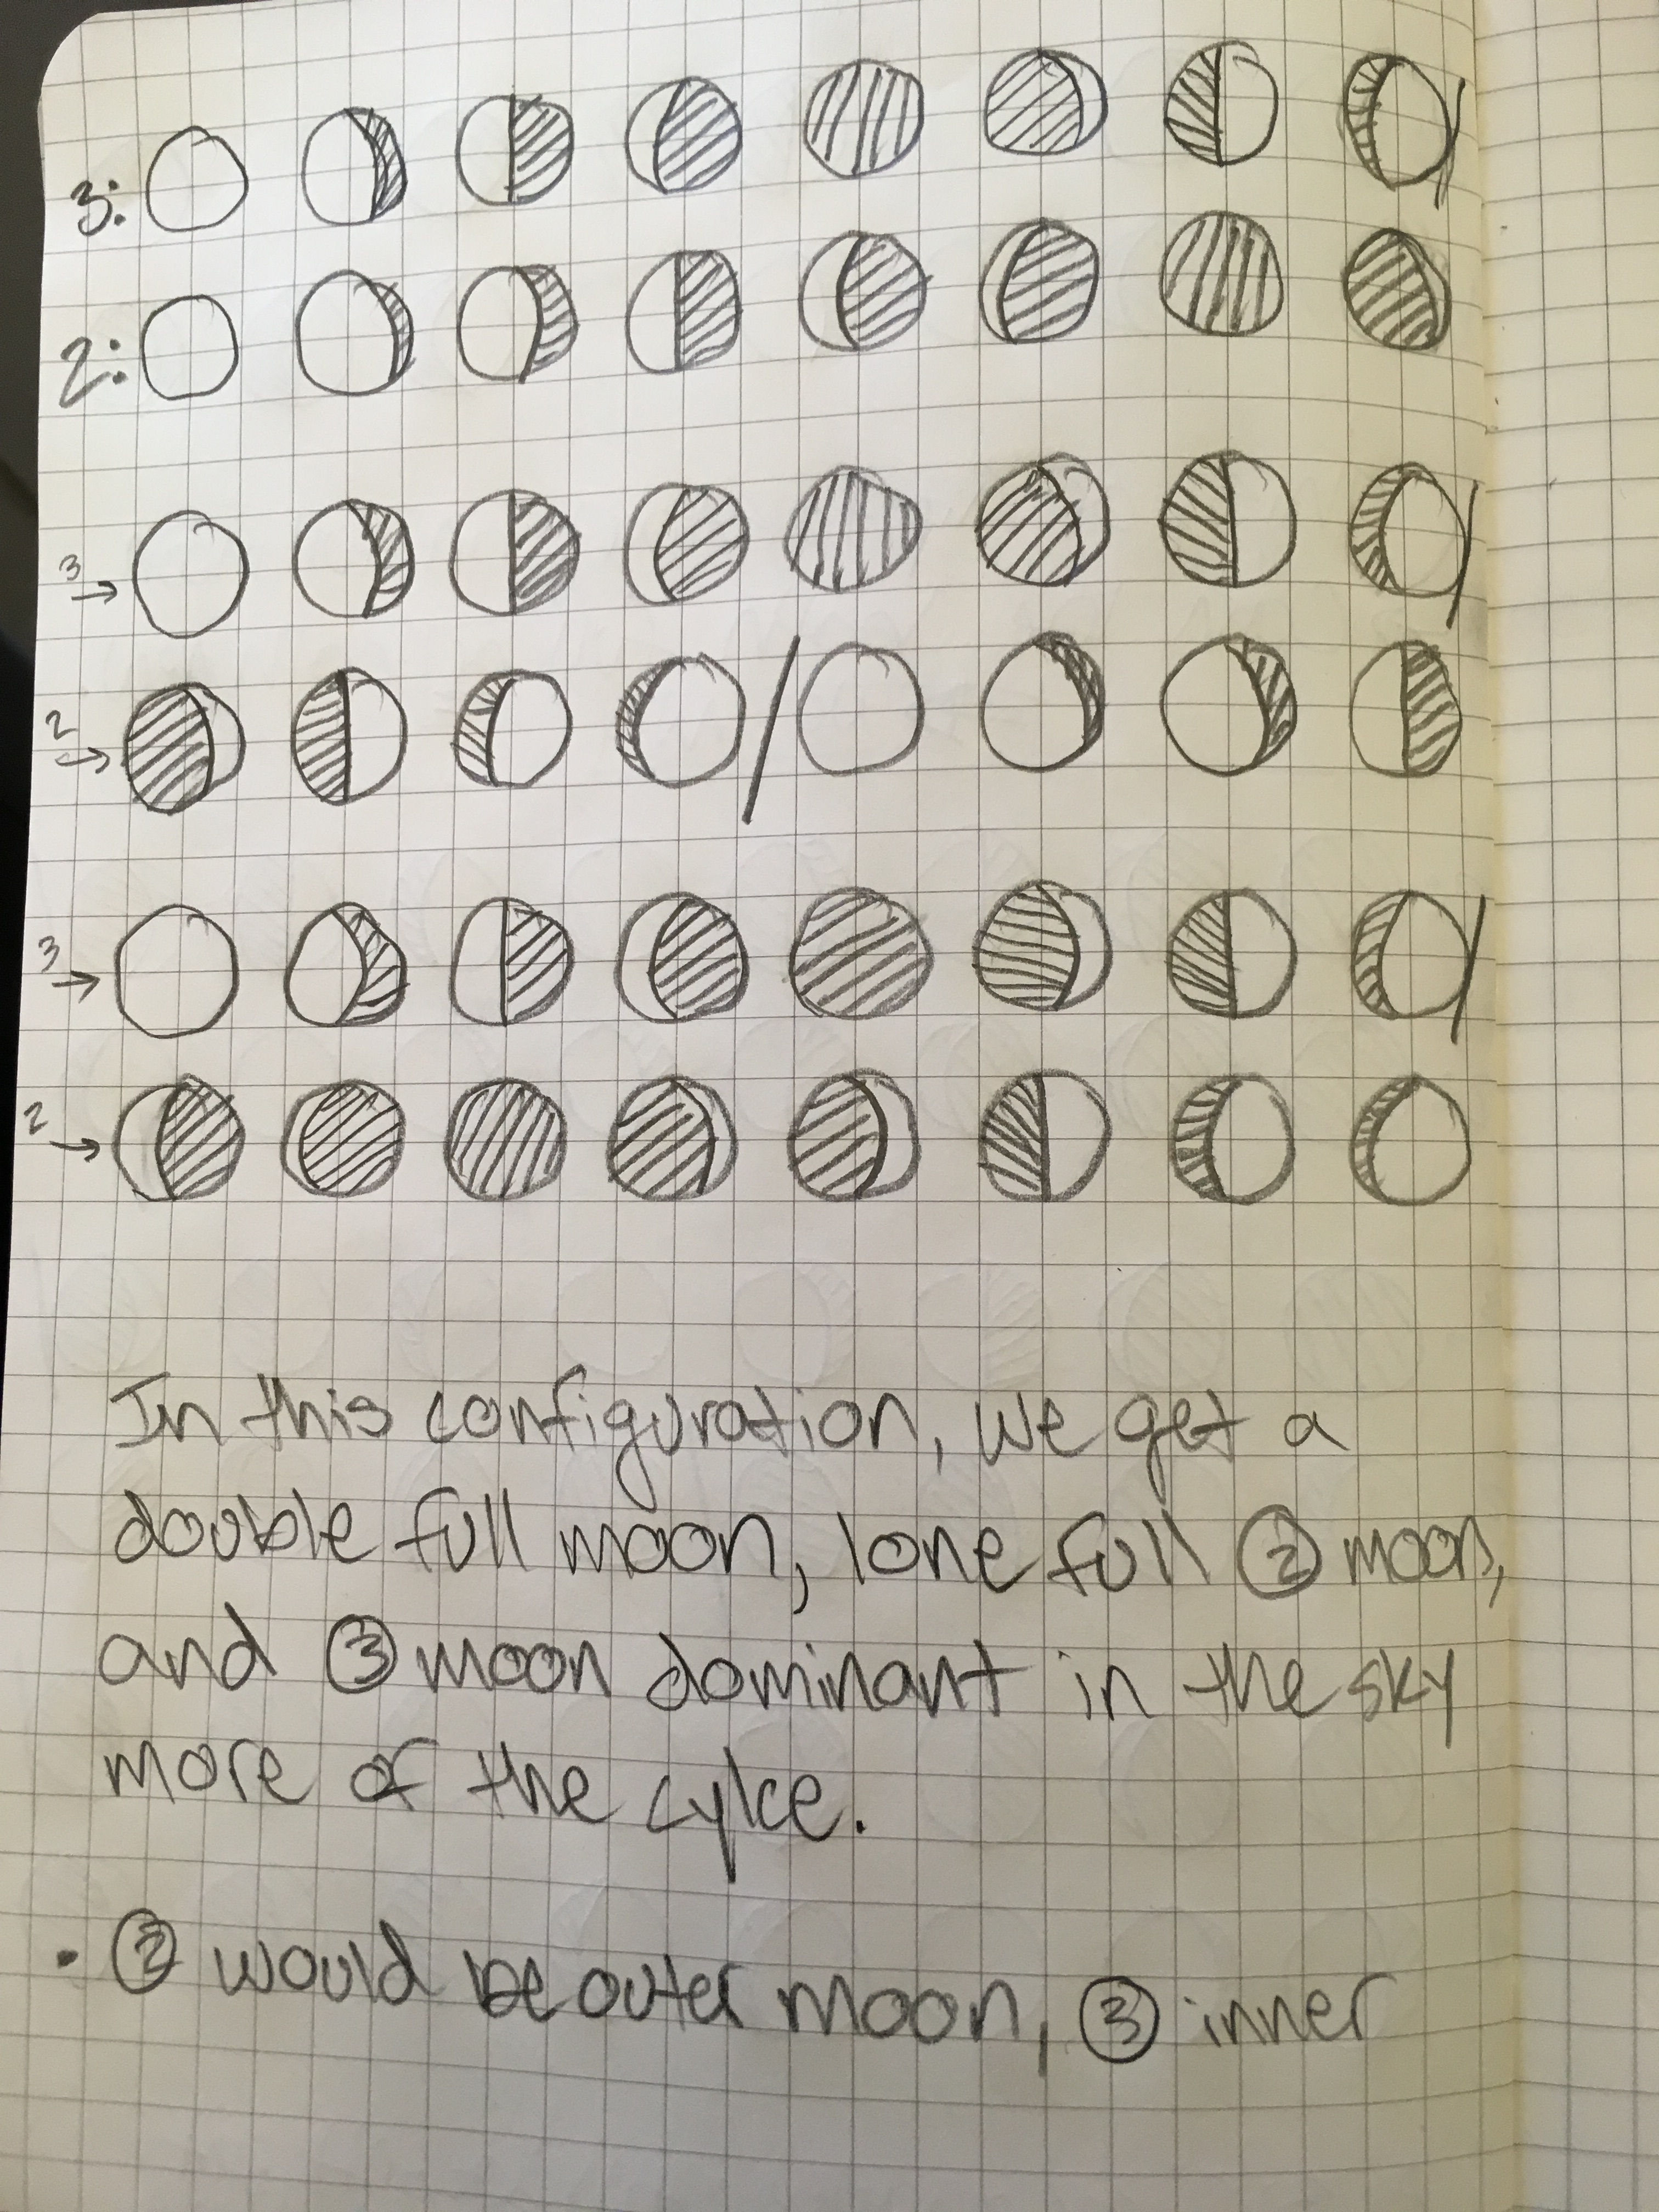 3:
2:
3 →
2 →
3 →
2 →
In this configuration, we get a
double full moon, lone full ② moon,
and ③ moon dominant in the sky
more of the cylce.
• ② would be outer moon, ③ inner